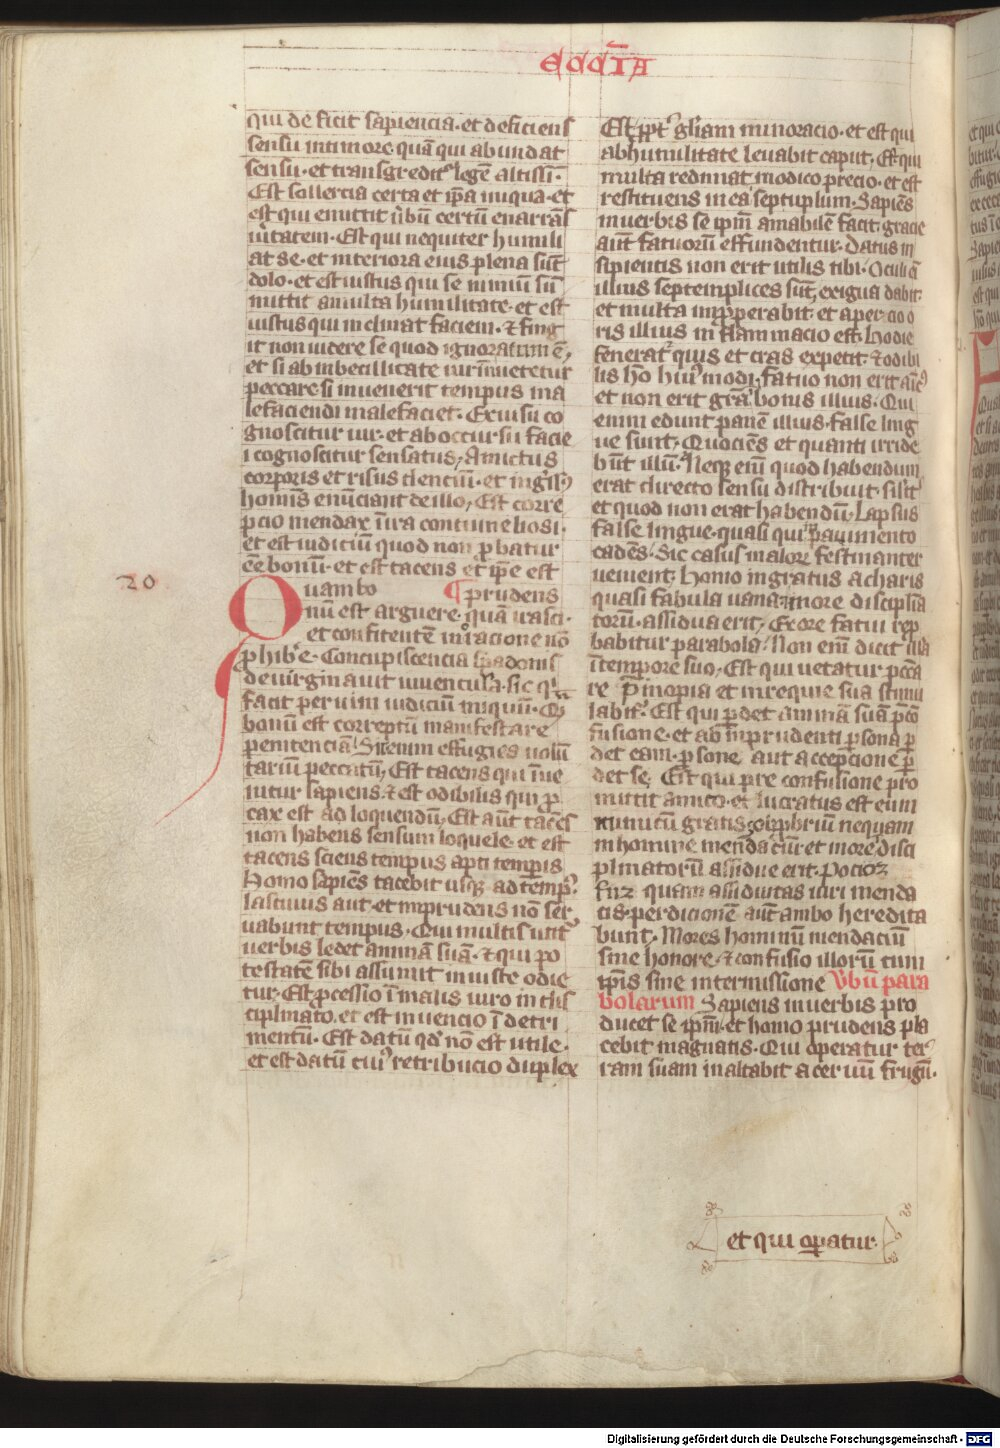 eccīa
qui deficit sapiencia·et deficiens
sensu in timore quā qui abundat
sensu·et transgredit᷑ legē altissī·
Est sollercia certa et ip̄a iniqua·et
est qui emittit v̄bū certū enarrās
v̄itatem·Est qui nequiter humili
at se·et interiora eius plena sūt
dolo·et est iustus qui se nimiū sū
mittit a multa humilitate·et est
iustus qui inclinat faciem·⁊ fing
it non videre se quod ignoratum ē,
et si ab inbecillitate virium vetetur
peccare si invenerit tempus ma
lefaciendi malefaciet· Ex visu co
gnoscitur vir·et ab occursu facie
i cognoscitur sensatus, Amictus
corporis et risus dencium·et ingr̄ss᷒
hominis enūciant de illo, Est corre
pcio mendax in ira contumeliosi·
et est iudiciū quod non ꝓbatur
eē bonū·et est tacens et ip̄e est
20
Quam bo ¶prudens
nū est arguere·quā irasci·
et confitentē in or̄acione nō
ꝓhib̄e·Concupiscencia spadonis
devirginavit iuvencula·sic qⁱ
facit per vim iudiciū iniquū·Q̄
bonū est correptū manifestare
penitenciā! Sic enim effugies volū
tariū peccatū, Est tacens qui īve
nitur sapiens·⁊ est odibilis qui ꝓ
cax est ad loquendū, Est aūt tacēs
non habens sensum loquele·et est
tacens sciens tempus apti temporis
Homo sapiēs tacebit usq̨ ad temp᷒·
lascivus aut̄·et imprudens nō ser
vabunt tempus·Qui multis utit᷑
verbis ledet animā suā·⁊ qui po
testatē sibi assumit iniuste odie
tur·Est ꝓcessio ī malis viro in dis
ciplinato·et est invencio ī detri
mentū·Est datū qd̄ nō est utile·
et est datū cui᷒ retribucio duplex
Est ꝓpt᷑ gl̄iam minoracio·et est qui
ab humilitate levabit caput, Est qui
multa redimat modico precio·et est
restituens in ea septuplum·Sapiēs
in verbis se ip̄m amabilē facit·gracie
aūt fatuorū effundentur·Datus in
sipientis non erit utilis tibi·Oculi em̄
illius septemplices sūt, exigua dabit·
et multa improperabit·et apercio o
ris illius inflammacio est·Hodie
fenerat᷑ quis et cras expetit·⁊ odibi
lis hō hui᷒modi, fatuo non erit amic᷒
et non erit grā bonis illius·Qui
enim edunt panē illius·false ling
ue sunt, Quociēs et quanti irride
būt illū. Neque enī quod habendum
erat directo sensu distribuit·silit᷑
et quod non erat habendū, Lapsus
false lingue·quasi qui pavimento
cadēs·Sic casus malorū festinanter
venient, Homo ingratus acharis
quasi fabula vana·in ore disciplīa
torū·assidua erit, Ex ore fatui rep
babitur parabola, Non enī dicit illā
ī tempore suo, Est qui vetatur pecca
re p̄ inopia et in requie sua stimu
labit᷑·Est qui ꝑdet animā suā p̄ cō
fusione·et ab imprudenti ꝑsona ꝑ
det eam·ꝑsone aut accepcione ꝑ
det se, Est qui pre confusione pro
mittit amico·et lucratus est eum
inimicū gratis, opprobriū nequam
in homine mendaciū·et in ore disci
plinatorū assidue erit·Pocior
fur quam assiduitas viri menda
cis·perdicionē aūt ambo heredita
bunt·Mores hominū mendaciū
sine honore·⁊ confusio illorū cum
ip̄is sine intermissione v̄bū para
bolarum Sapiens in verbis pro
ducet se ip̄m·et homo prudens pla
cebit magnatis·Qui operatur ter
ram suam inaltabit acervū frugū·
et qui operatur·
Digitalisierung gefördert durch die Deutsche Forschungsgemeinschaft - DFG